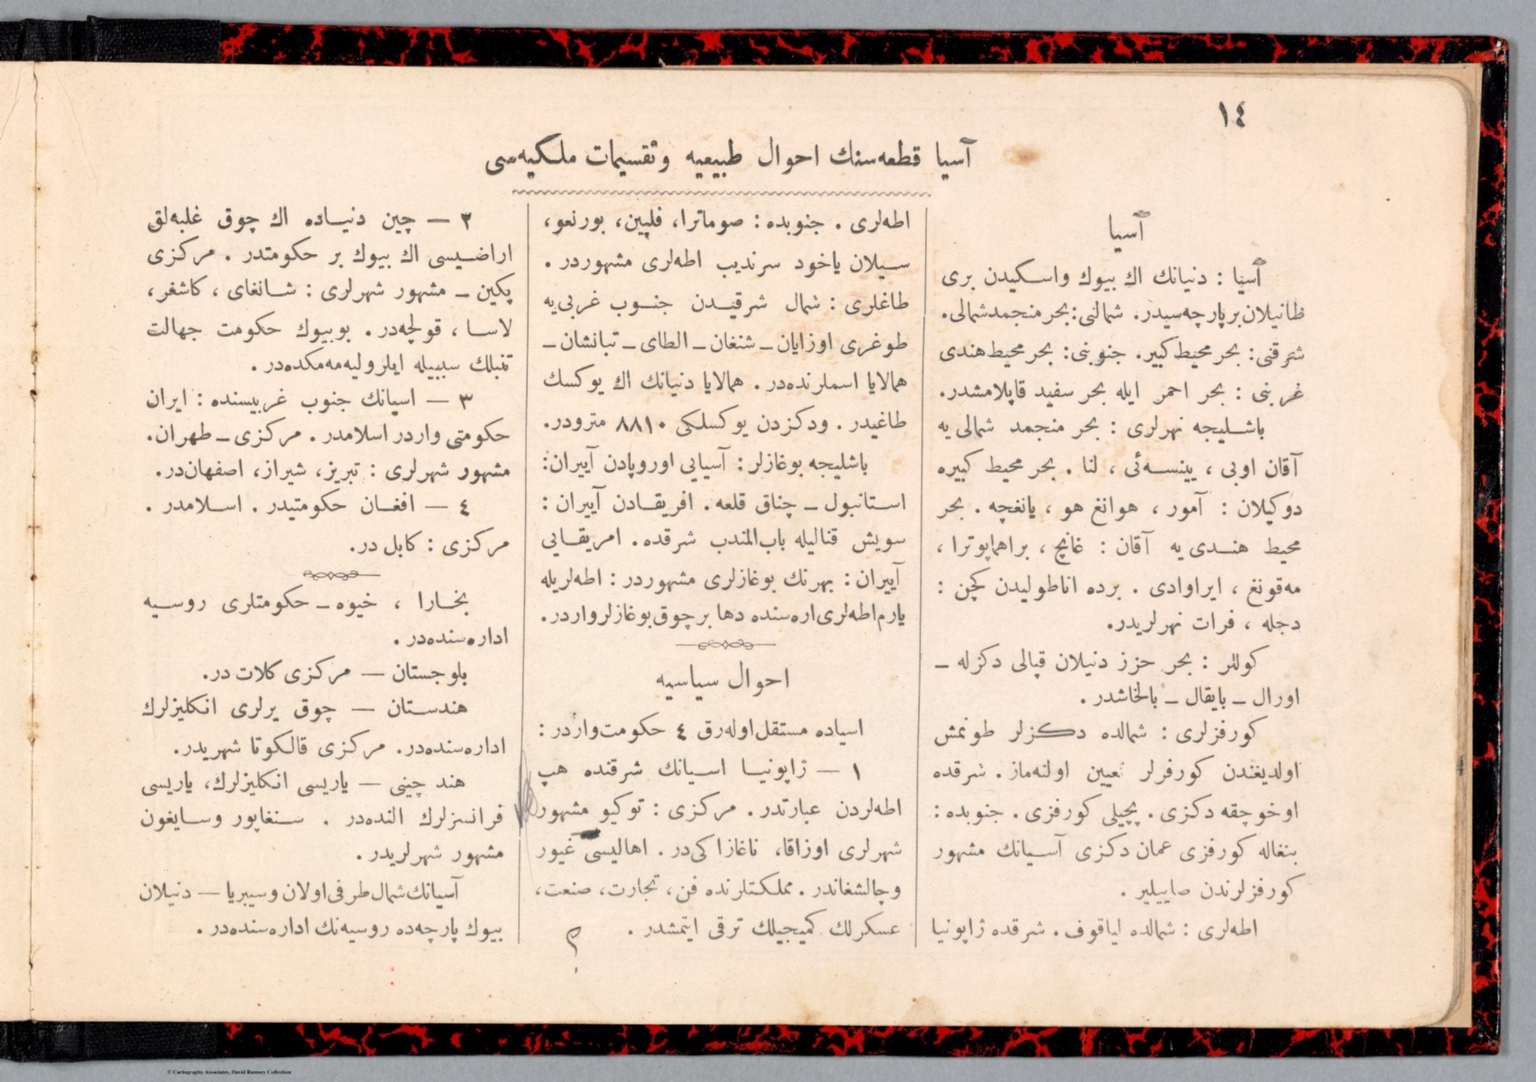 ١٤
آسيا قطعه‌سنك احوال طبيعيه وتقسيمات ملكيه‌سی
آسيا
آسيا : دنيانك اك بيوك واسكيدن بری
طانيلان بر پارچه‌سيدر. شمالنی: بحر منجمد شمالی.
شرقنی: بحر محيط كبير. جنوبنی: بحر محيط هندی
غربنی : بحر احمر ايله بحر سفيد قاپلامشدر.
باشليجه نهرلری : بحر منجمد شمالی‌يه
آقان اوبی ، يينسه‌ئی ، لنا . بحر محيط كبيره
دوكيلان : آمور ، هوانغ هو ، يانغچه . بحر
محيط هندی‌يه آقان : غانج ، براهماپوترا ،
مه‌قونغ ، ايراوادی . برده اناطوليدن كچن :
دجله ، فرات نهرلريدر.
كوللر : بحر حزز دنيلان قپالی دكزله ـ
اورال ـ بايقال ـ بالخاشدر .
كورفزلری : شمالده دكزلر طونمش
اولديغندن كورفرلر تعيين اولنه‌ماز . شرقده
اوخوچقه دكزی . پچيلی كورفزی . جنوبده :
بنغاله كورفزی عمان دكزی آسيانك مشهور
كورفزلرندن صاييلير .
اطه‌لری : شمالده لياقوف . شرقده ژاپونيا
اطه‌لری . جنوبده : صوماترا، فلپين، بورنعو،
سيلان ياخود سرنديب اطه‌لری مشهوردر .
طاغلری : شمال شرقيدن جنوب غربی‌يه
طوغری اوزايان ـ شنغان ـ الطای ـ تيانشان ـ
هملايا اسملرنده‌در . هملايا دنيانك اك يوكسك
طاغيدر . ودكزدن يوكسلكی ٨٨١٠ مترودر.
باشليجه بوغازلر : آسيايی اوروپادن آييران:
استانبول ـ چناق قلعه . افريقادن آييران :
سويش قناليله باب‌المندب شرقده . امريقايی
آييران : بهرنك بوغازلری مشهوردر : اطه‌لريله
يارم اطه‌لری اره‌سنده دها بر چوق بوغازلر واردر.
احوال سياسيه
اسياده مستقل اوله‌رق ٤ حكومت واردر :
١ — ژاپونيا اسيانك شرقنده هپ
اطه‌لردن عبارتدر . مركزی : توكيو مشهور
شهرلری اوزاقا، ناغازاكی‌در . اهاليسی غيور
وچالشغاندر . مملكتلرنده فن، تجارت، صنعت،
عسكرلك كميجيلك ترقی ايتمشدر .
٢ — چين دنياده اك چوق غلبه‌لق
اراضيسی اك بيوك بر حكومتدر . مركزی
پكين ـ مشهور شهرلری : شانغای ، كاشغر،
لاسا ، قولجه‌در. بو بيوك حكومت جهالت
تنبلك سببيله ايلروليه‌مه‌مكده‌در .
٣ — اسيانك جنوب غربيسنده : ايران
حكومتی واردر اسلامدر . مركزی ـ طهران.
مشهور شهرلری : تبريز، شيراز، اصفهان‌در.
٤ — افغان حكومتيدر . اسلامدر .
مركزی : كابل در.
بخارا ، خيوه ـ حكومتلری روسيه
اداره‌سنده‌در .
بلوجستان — مركزی كلات در.
هندستان — چوق يرلری انكليزلرك
اداره‌سنده‌در. مركزی قالكوتا شهريدر.
هند چينی — ياريسی انكليزلرك، ياريسی
فرانسزلرك النده‌در . سنغاپور وسايغون
مشهور شهرلريدر .
آسيانك شمال طرفی اولان وسيبريا — دنيلان
بيوك پارچه‌ده روسيه‌نك اداره‌سنده‌در .
© Cartography Associates, David Rumsey Collection